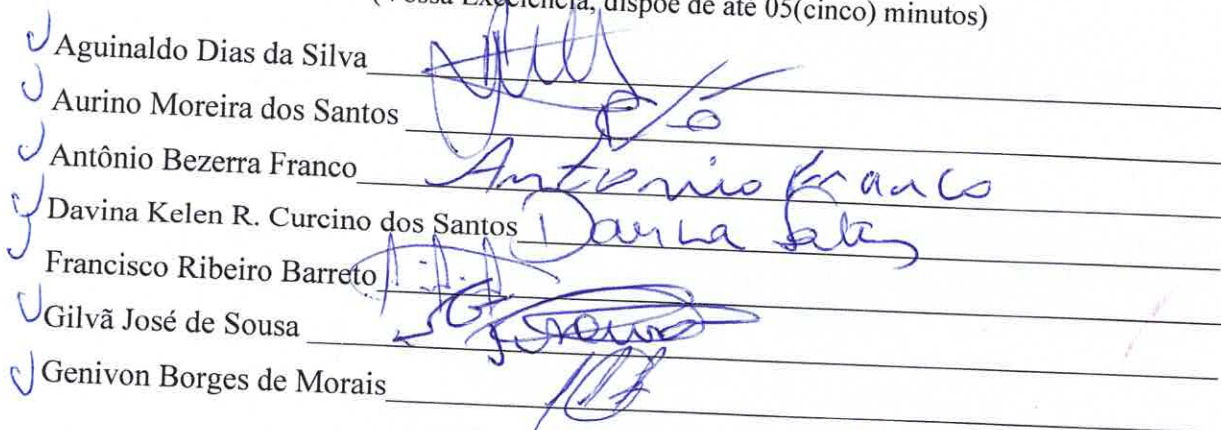 (Vossa Excelência, dispõe de até 05(cinco) minutos)
Aguinaldo Dias da Silva
Aurino Moreira dos Santos
Antônio Bezerra Franco Antonio Franco
Davina Kelen R. Curcino dos Santos Davina
Francisco Ribeiro Barreto
Gilvã José de Sousa
Genivon Borges de Morais